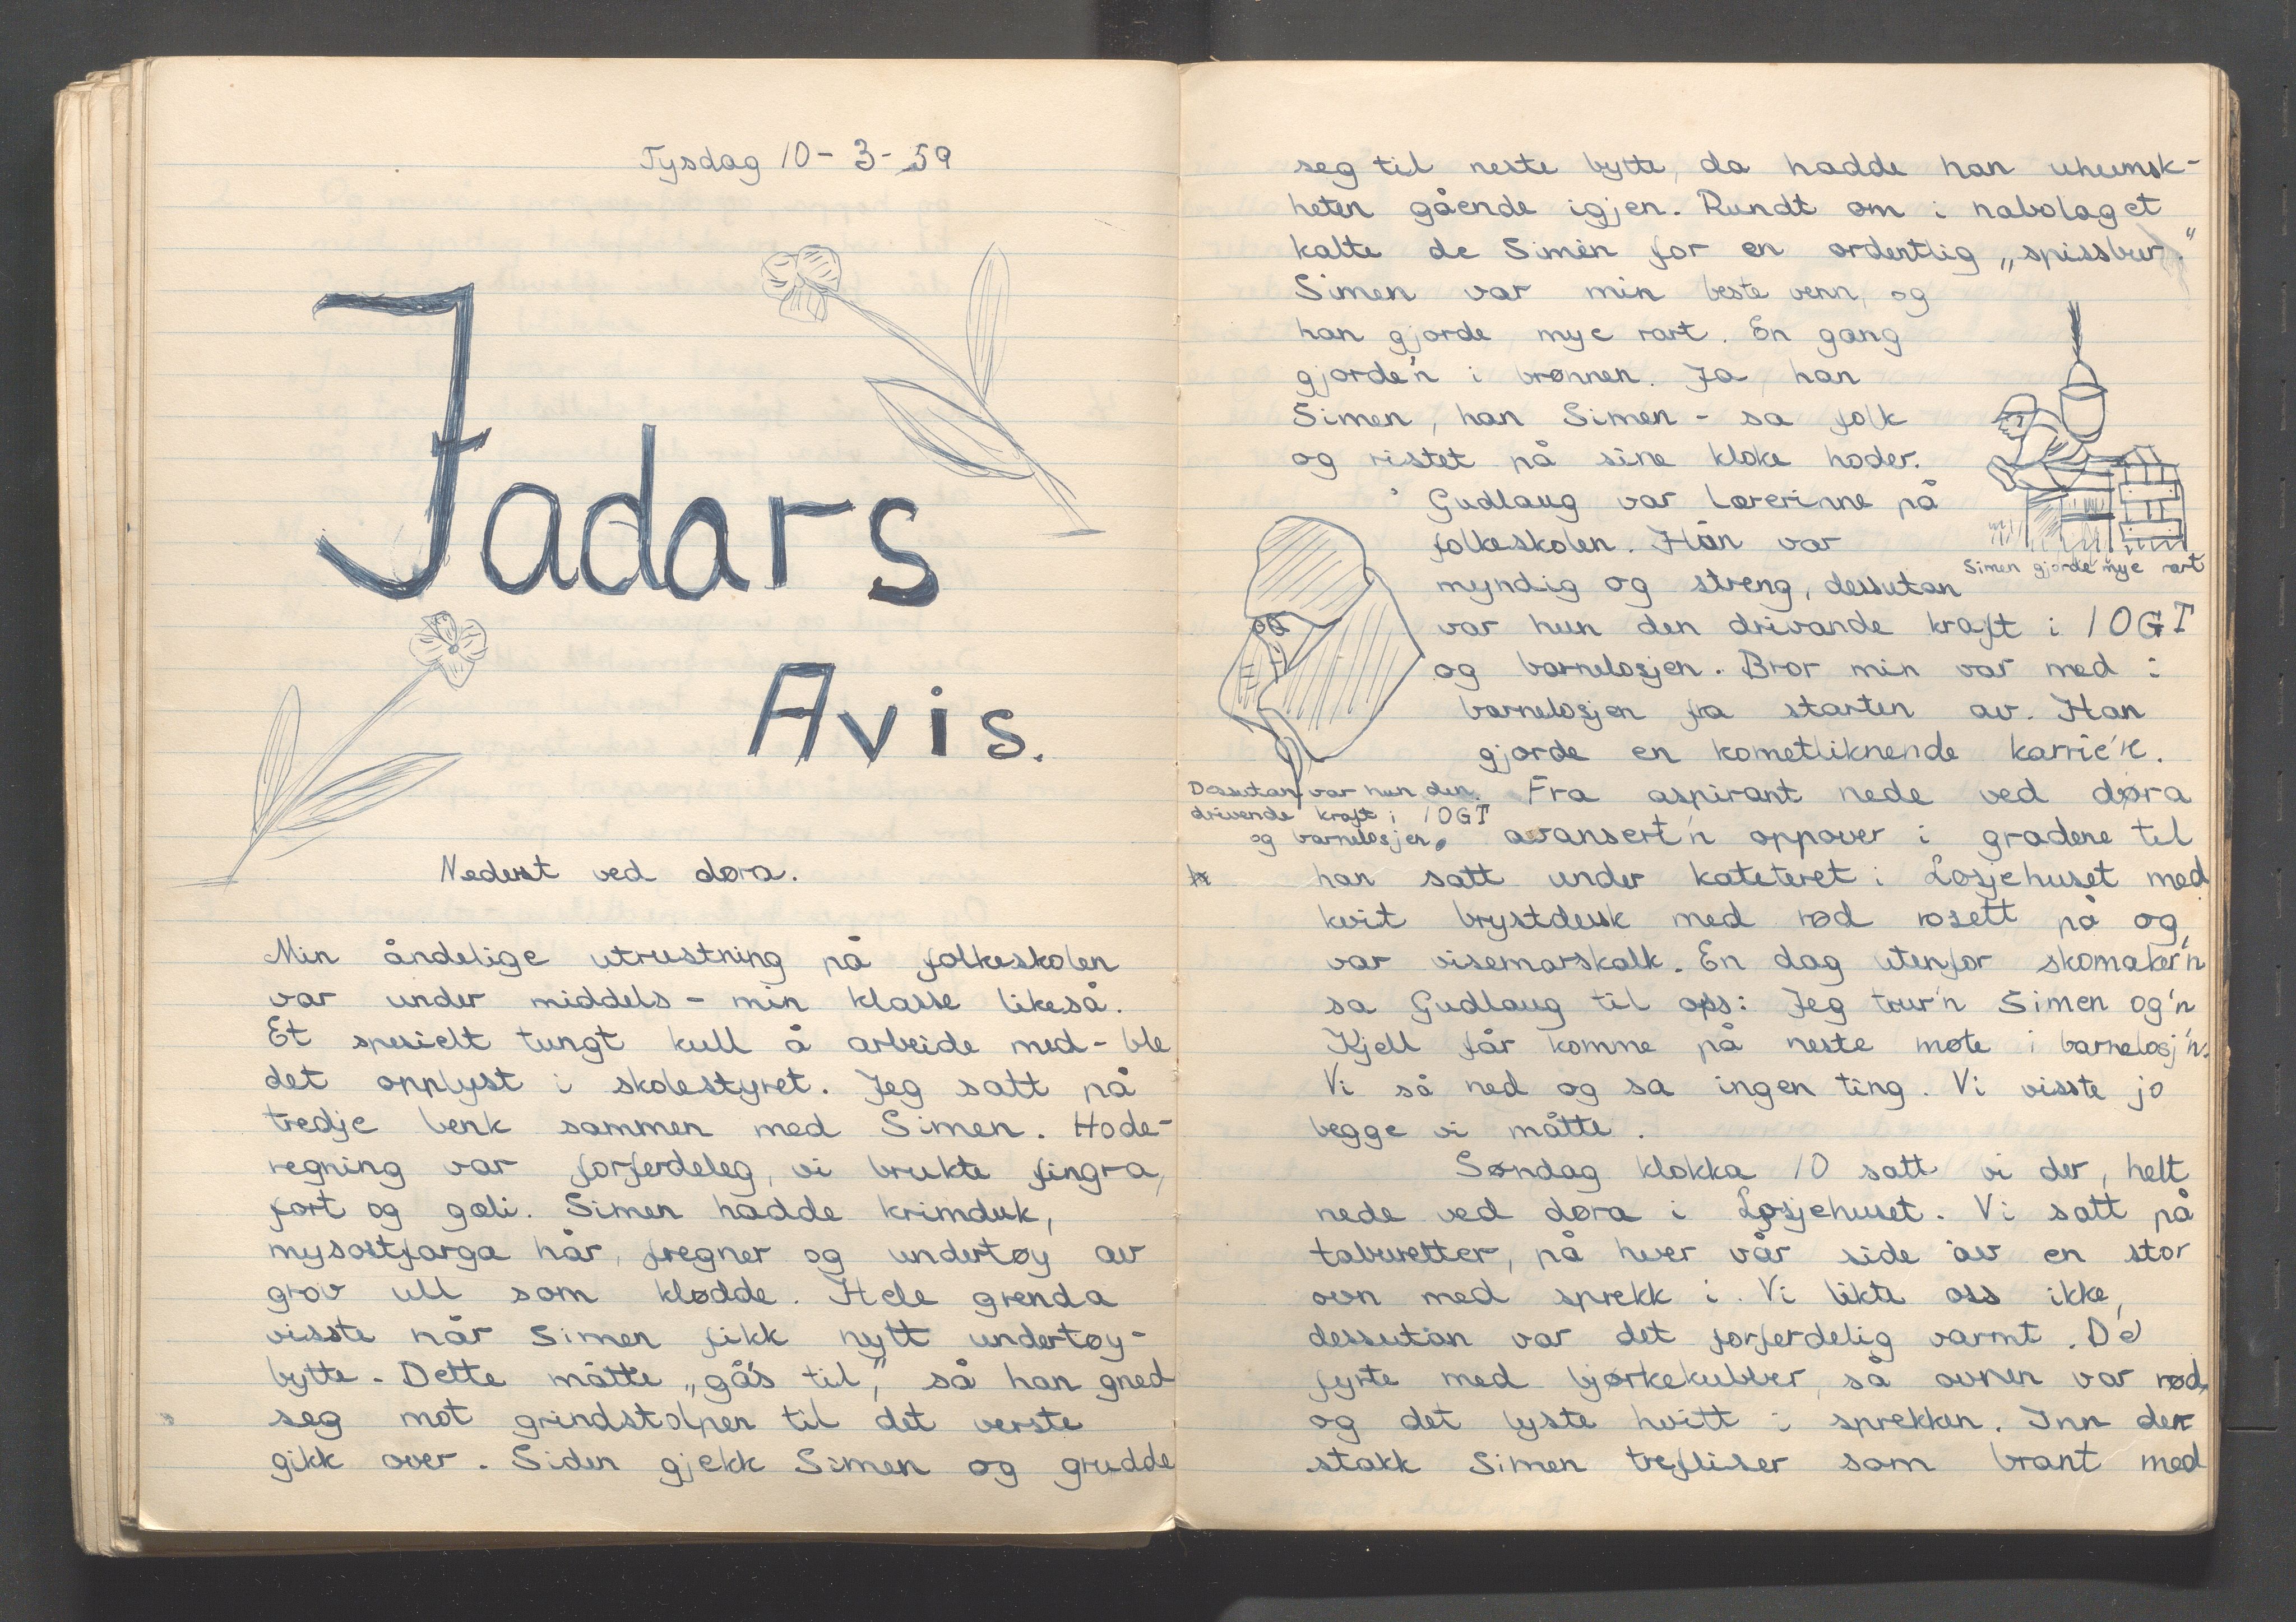 Tysdag 10-3-59
Jadars
Avis.
Nederst ved døra.
Min åndelige utrustning på folkeskolen
var under middels - min klasse likeså.
Et spesielt tungt kull å arbeide med - ble
det opplyst i skolestyret. Jeg satt på
tredje benk sammen med Simen. Hode-
regning var forferdeleg, vi brukte fingra,
fort og gæli. Simen hadde krimduk,
mysostfarga hår, fregner og undertøy av
grov ull som klødde. Hele grenda
visste når Simen fikk nytt undertøy-
bytte. Dette måtte „gås til”, så han gned
seg mot grindstolpen til det verste
gikk over. Siden gjekk Simen og grudde
seg til neste bytte, da hadde han uheimsk-
heten gående igjen. Rundt om i nabolaget
kalte de Simen for en ordentlig „spissbur.”
Simen var min beste venn, og
han gjorde mye rart. En gang
gjorde'n i brønnen. Ja han
Simen, han Simen - sa folk
og ristet på sine kloke hoder.
Simen gjorde mye rart
Gudlaug var Lærerinne på
folkeskolen. Han var
myndig og streng, dessutan
var hun den drivande kraft i IOGT
og barnelosjen. Bror min var med i
barnelosjen fra starten av. Han
gjorde en kometliknende karrié're.
Dessutan var hun den
drivende kraft i IOGT
og barnelosjen.
Fra aspirant nede ved døra
avansert'n oppover i gradene til
han satt under kateteret i Losjehuset med
kvit brystdusk med rød rosett på og
var visemarskalk. En dag utenfor skomaker'n
sa Gudlaug til oss: Jeg trur'n Simen og'n
Kjell får komme på neste møte i barnelosj'n.
Vi så ned og sa ingen ting. Vi visste jo
begge vi måtte.
Søndag klokka 10 satt vi der, helt
nede ved døra i Losjehuset. Vi satt på
taburetter, på hver vår side av en stor
ovn med sprekk i. Vi likte oss ikke,
dessutan var det forferdelig varmt. De
fyrte med bjørkekubber, så ovnen var rød,
og det lyste hvitt i sprekken. Inn der
stakk Simen trefliser som brant med